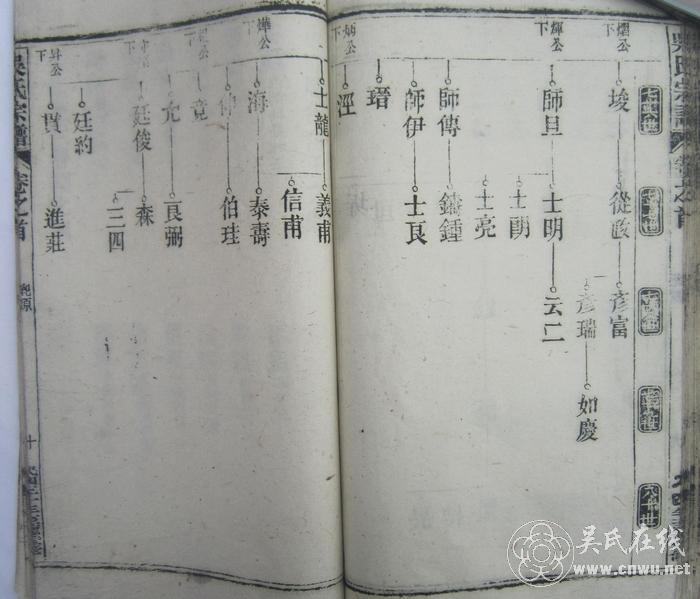 吳氏宗譜
卷之首
燿公下
埈
從政
彥富
彥瑞
如慶
輝公下
師旦
士明
云二
士朗
士亮
師傳
鑄鍾
師伊
士良
瑨
炳公下
涇
燁公下
士龍
義甫
信甫
海
泰壽
仲
伯珪
竟
允
良弼
廷俊
森
三四
昇公下
廷約
貫
進莊
吳氏宗譜
卷之首
十
吴氏在线
www.cnwu.net